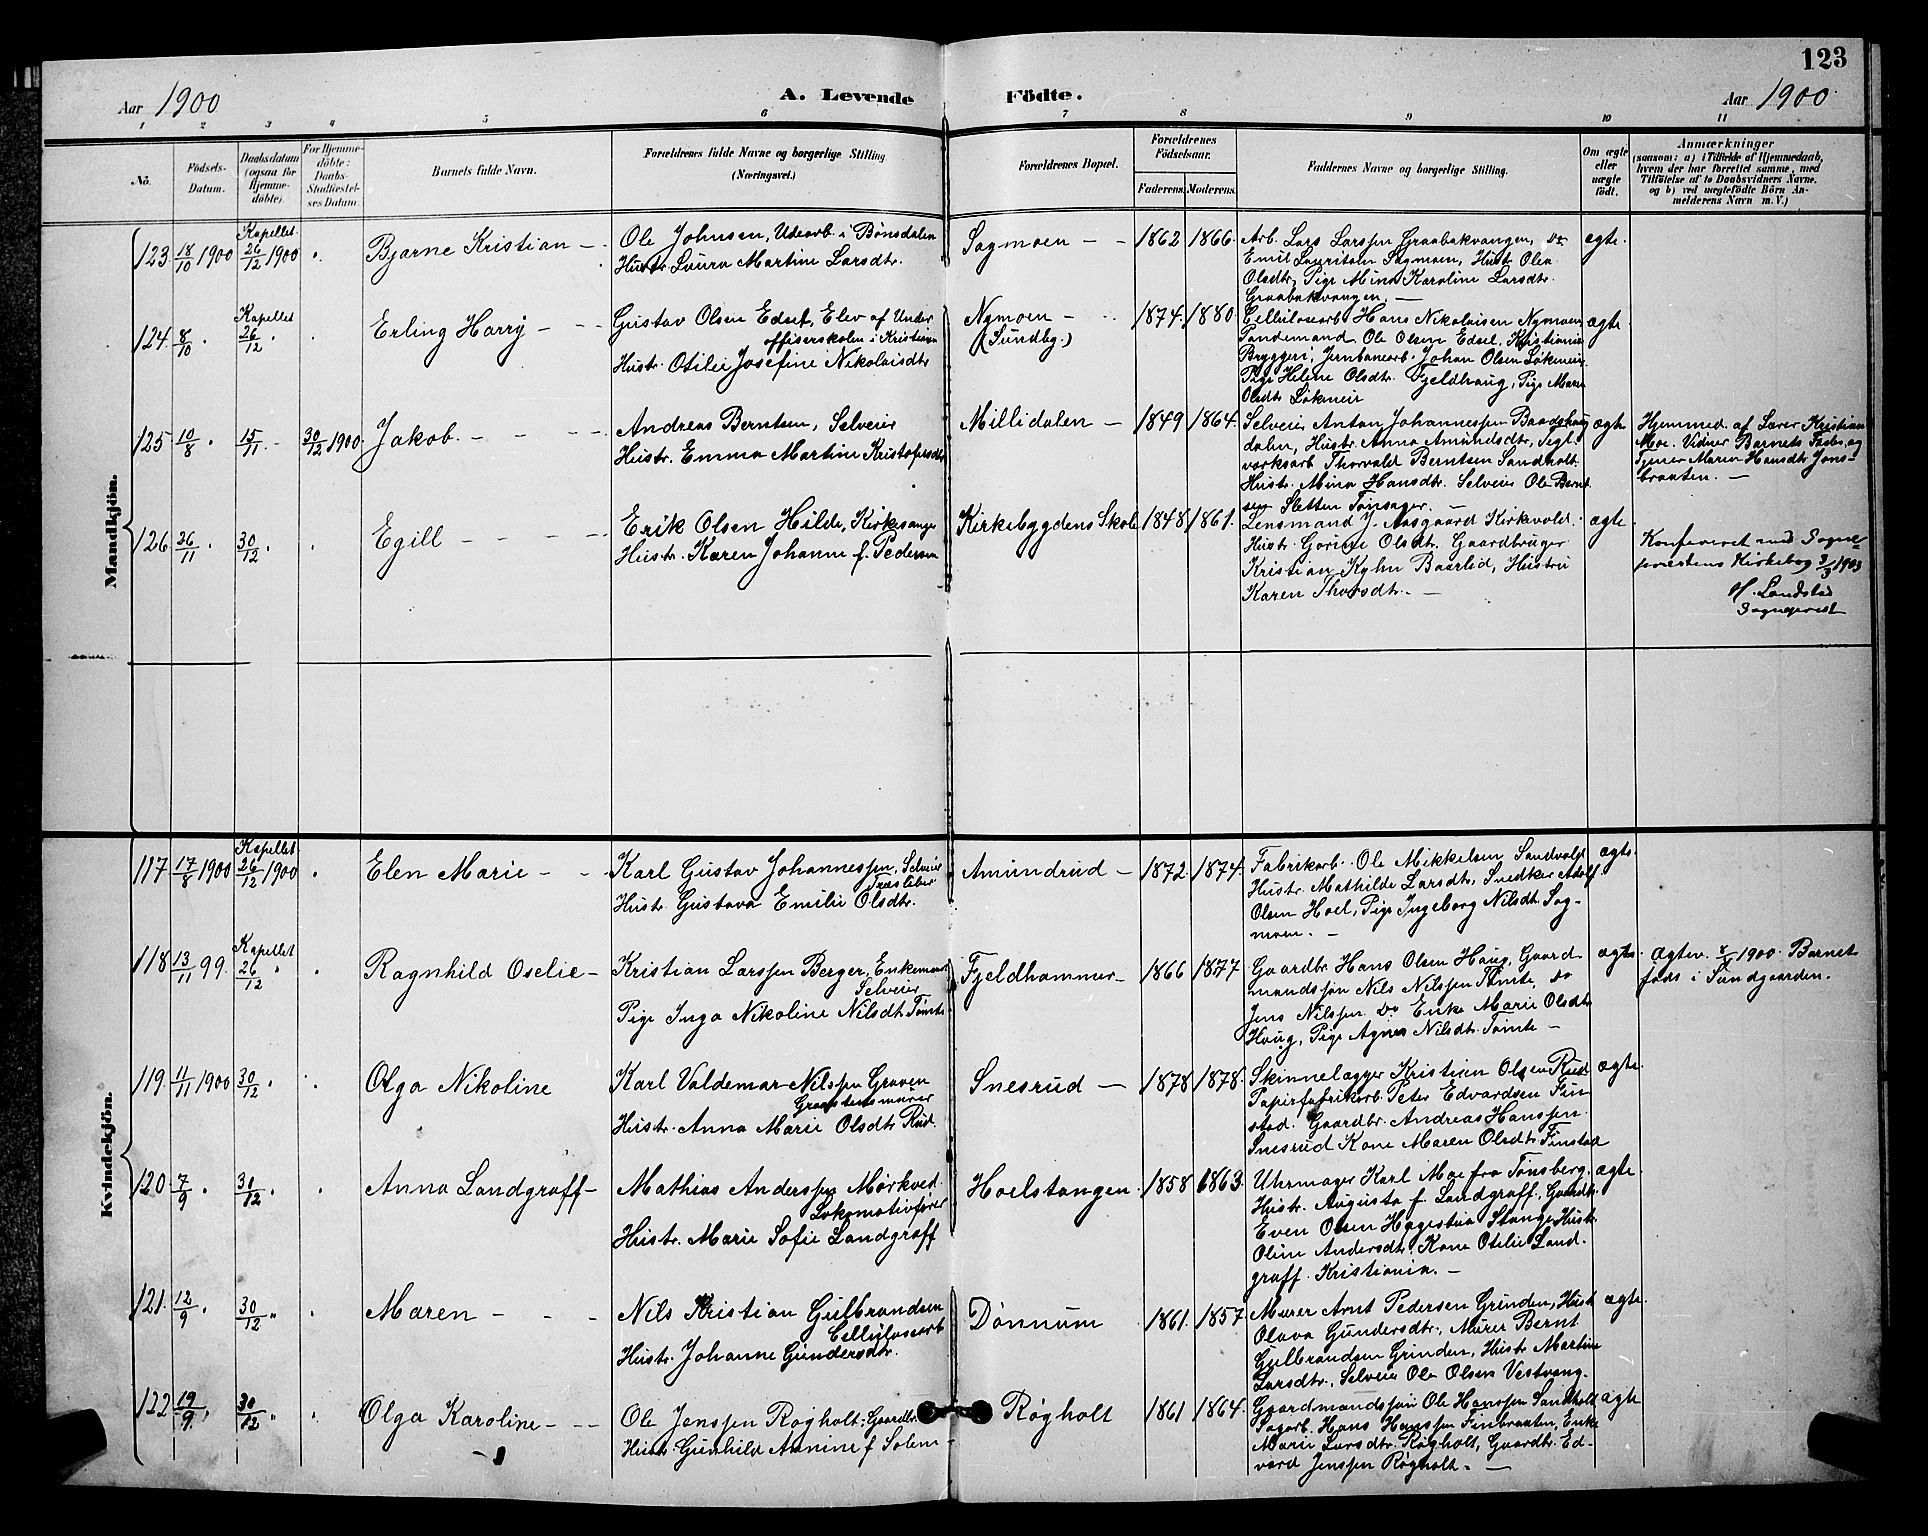 123
Aar 1900
A. Levende Födte.
Aar 1900
1 2 3 4 5 6 7 8 9 10 11
No.
Födsels-
Datum.
Daabsdatum
(ogsaa for
Hjemme-
döbte).
For Hjemme-
döbte:
Daabs-
Stadfæstel-
ses Datum.
Barnets fulde Navn.
Forældrenes fulde Navne og borgerlige Stilling
(Næringsvei.)
Forældrenes Bopæl.
Forældrenes
Födselsaar.
Faderens. Moderens.
Faddernes Navne og borgerlige Stilling.
Om ægte
eller
uægte
födt.
Anmærkninger
(saasom: a) i Tilfælde af Hjemmedaab,
hvem der har forrettet samme, med
Tilföielse af to Daabsvidners Navne,
og b) ved uægtefödte Börn An-
melderens Navn m. V.)
Mandkjön.
123. 18/10 1900
Kapellet
26/12 1900
Bjarne Kristian
Ole Johnsen, Udearb. i Bönsdalen
Hustr. Laura Martine Larsdtr.
Sagmoen
1862 1866.
Arb. Lars Larssen Graabakvangen, Do
Emil Lauritsen Sagmoen, Hustr. Olea
Olsdtr, Pige Mina Karoline Larsdtr.
Graabakvangen.
ægte.
124. 8/10
Kapellet
26/12
Erling Harry
Gustav Olsen Edset, Elev af Under
offiserskolen i Kristiania
Hustr. Otilie Josefine Nikolaisdtr
Nymoen
(Sundbg.)
1874. 1880.
Cellulosearb. Hans Nikolaisen Nymoen
Tandemand Ole Olsen Edset, Kristiania
Bryggeri, Jernbanearb. Johan Olsen Løkmeier
Pige Helene Olsdtr. Fjeldhaug, Pige Marie
Olsdtr Løkmeier
ægte
125. 10/8
15/11
30/12 1900
Jakob
Andreas Berntsen, Selveier
Hustr. Emma Martine Kristofersdtr
Millidalen
1849 1864.
Selveier Anton Johannessen Baadshaug
dalen, Hustr. Anna Amundsdtr, Tegl-
værksarb Thorvald Berntsen Sandholt
Hustr. Mina Hansdtr. Selveier Ole Bernt
sen Sletten Tønsager.
ægte
Hjemmed. af Lærer Kristian
Moe. Vidner Barnets Fader og
Tjener Maren Hansdtr Jons-
braaten.
126. 26/11
30/12
Egill
Erik Olsen Hilde, Kirkesanger
Hustr. Karen Johanne f. Pedersen
Kirkebygdens Skole
1848 1861.
Lensmand J. Aasgaard Kirkvold.
Hustr. Gorine Olsdtr. Gaardbruger
Kristian Kyhn Baarlid, Hustru
Karen Thorsdtr.
ægte
Konfereret med Sogne-
præstens Kirkebog 3/3 1903
H. Landstad
Sognepræst
Kvindekjön.
117 17/8 1900
Kapellet
26/12 1900
Elen Marie
Karl Gustav Johannessen, Selveier
Træsleber
Hustr. Gustava Emilie Olsdtr.
Amundrud
1872 1874.
Fabrikarb. Ole Mikkelsen Sandvold
Hustr. Mathilde Larsdtr, Snedker Adolf
Olsen Hoel, Pige Ingeborg Nilsdtr. Sag-
moen.
ægte.
118 13/11 99.
Kapellet
26/12
Ragnhild Oselie
Kristian Larssen Berger, Enkemand
Selveier
Pige Inga Nikoline Nilsdt. Tömte
Fjeldhammer
1866 1877
Gaardbr. Hans Olsen Haug, Gaard
mandssøn Nils Nilssen Tömte, do
Jens Nilssen Do Enke Marie Olsdtr
Haug, Pige Agnes Nilsdtr. Tömte
ægte.
Ægtev. 1900. Barnet
født i Sundgaarden.
119. 11/11 1900
30/12
Olga Nikoline
Karl Valdemar Nilssen Graven
Graastensmurer
Hustr. Anna Marie Olsdtr Rud.
Snesrud
1878 1878.
Skinnelægger Kristian Olsen Rud
Papirfabrikarb. Peter Edvardsen Fin
stad. Gaardbr. Andreas Hanssen
Snesrud Kone Maren Olsdtr Finstad
ægte.
120. 7/9
30/12
Anna Landgraff
Mathias Anderssen Mørkved
Lokomotivfører
Hustr. Marie Sofie Landgraff
Hoelstangen
1858 1863.
Uhrmager Karl Moe fra Tønsberg.
Hustr. Augusta f. Landgraff, Gaardb.
Even Olsen Hogestua Stange Hustr.
Oline Andersdtr. Kone Otilie Land-
graff. Kristiania.
ægte.
121. 12/9
30/12
Maren
Nils Kristian Gulbrandsen
Cellulosearb
Hustr. Johanne Gundersdtr.
Dønnum
1861. 1857
Murer Arnt Pedersen Grinden, Hustr
Olava Gundersdtr., Murer Bernt
Gulbrandsen Grinden, Hustr Martine
Larsdtr., Selveier Ole Olsen Vestvang.
ægte.
122 19/9
30/12
Olga Karoline
Ole Jenssen Røgholt; Gaardbr.
Hustr. Gunhild Annine f Solem
Røgholt
1861 1864.
Gaardmandssøn Ole Hanssen Sandholt
Sagarb. Hans Hanssen Finbraaten, Enke
Marie Larsdtr. Røgholt, Gaardbr. Ed-
vard Jenssen Røgholt.
ægte